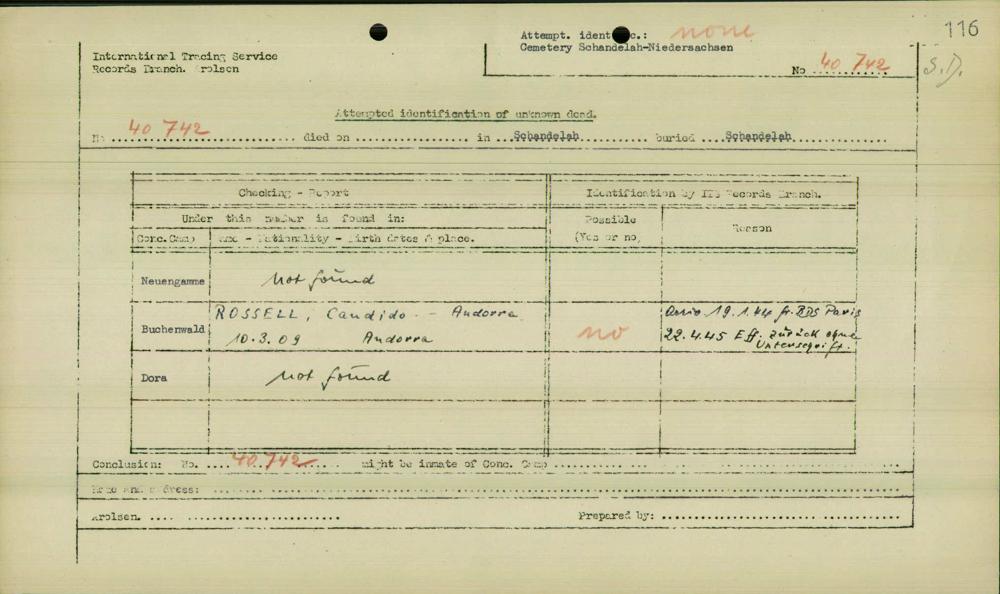 116
Attempt. ident c.: none
International Tracing Service
Cemetery Schandelah-Niedersachsen
Records Branch. Arolsen
No 40 742
S.D.
Attempted identification of unknown dead.
No 40 742 died on in Schandelah buried Schandelah
Checking - Report
Identification by ITS Records Branch.
Under this number is found in:
Possible
(Yes or no)
Reason
Conc.Camp
Name - Nationality - Birth dates & place.
Neuengamme
Not found
Buchenwald
ROSSELL, Candido - Andorra
10.3.09 Andorra
no
19.1.44 fr. BDS Paris
22.4.45 Eff. zurück ohne
Unterschrift.
Dora
Not found
Conclusion: No. 40 742 might be inmate of Conc. Camp
Name and address:
Arolsen.
Prepared by: